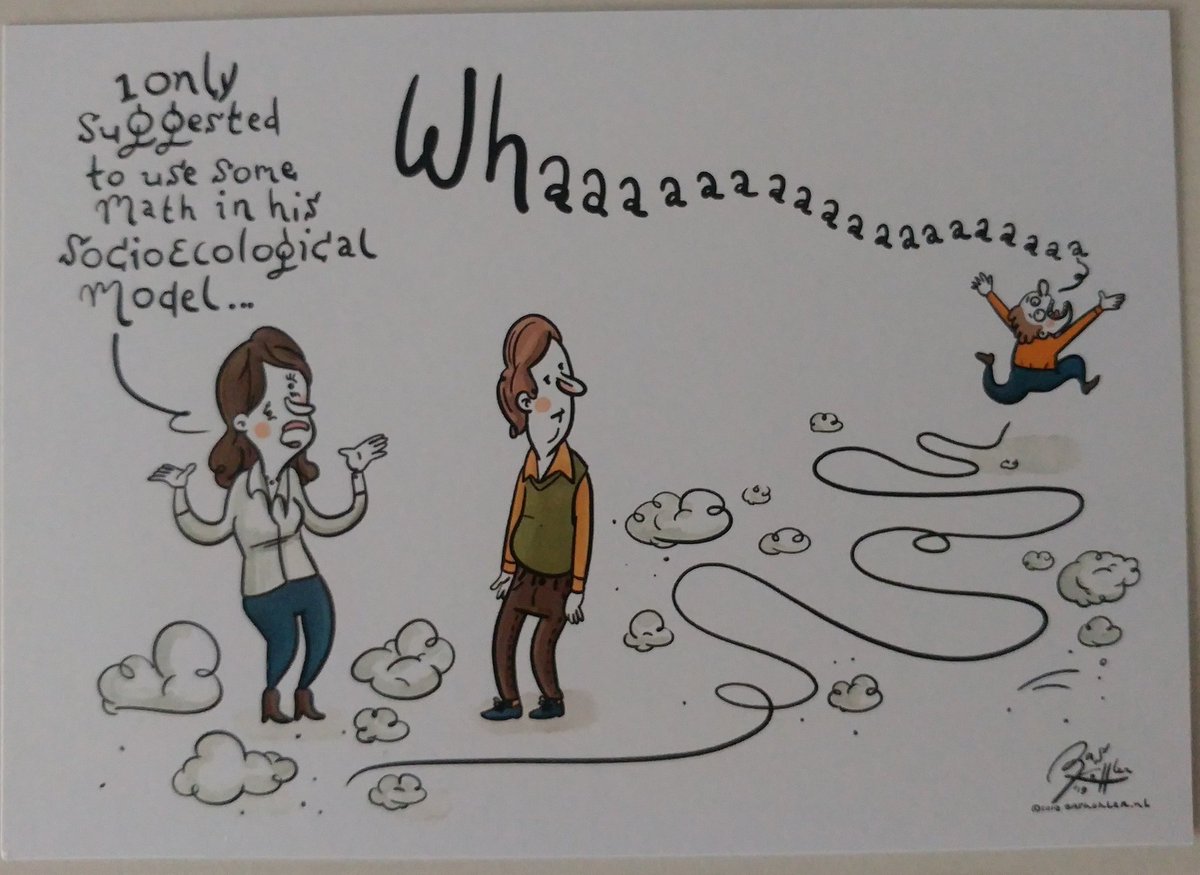 I only
suggested
to use some
Math in his
SocioEcological
Model...
Whaaaaaaaaaaaaaaaaaaa